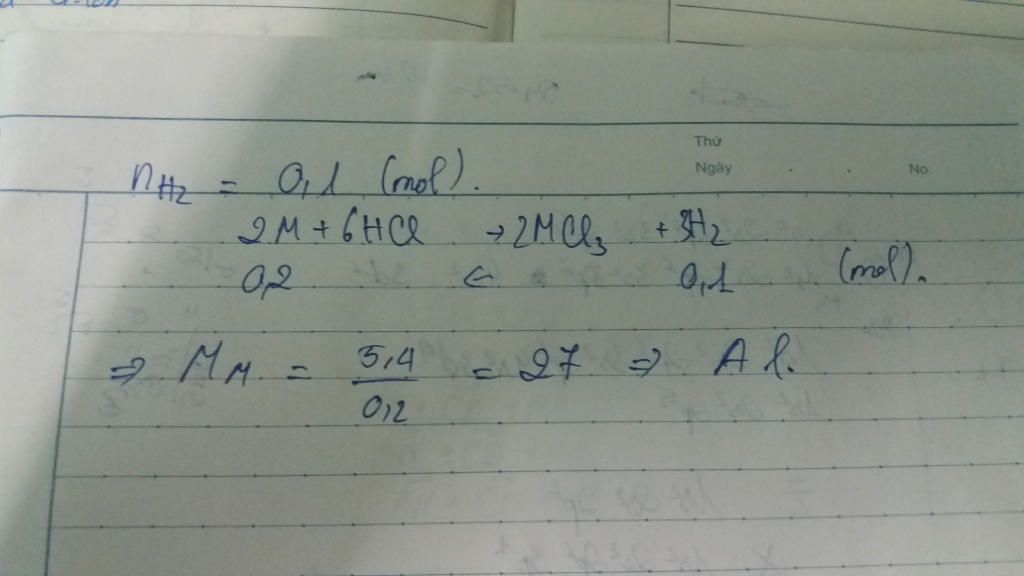 Thứ
Ngày No.
n H2 = 0,1 (mol).
2M + 6HCl → 2MCl3 + 3H2
0,2 ← 0,1 (mol).
⇒ M M = 5,4 / 0,2 = 27 ⇒ Al.